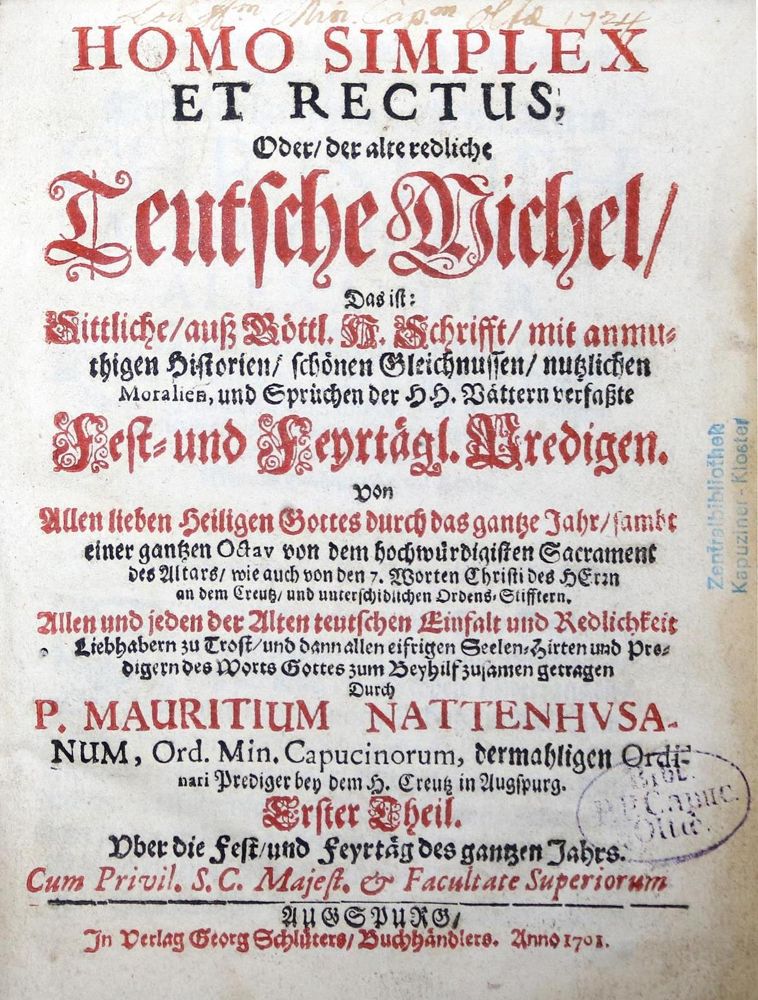 Loci Ff^m Min. Cap^m Oltæ 1724
HOMO SIMPLEX
ET RECTUS,
Oder/ der alte redliche
Teutsche Michel/
Das ist:
Sittliche/ auß Göttl. H. Schrifft/ mit anmu-
thigen Historien/ schönen Gleichnussen/ nutzlichen
Moralien, und Sprüchen der HH. Vättern verfaßte
Fest- und Feyrtägl. Predigen.
Von
Allen lieben Heiligen Gottes durch das gantze Jahr/ sambt
einer gantzen Octav von dem hochwürdigisten Sacrament
des Altars/ wie auch von den 7. Worten Christi des HErrn
an dem Creutz/ und unterschidlichen Ordens-Stifftern.
Allen und jeden der Alten teutschen Einfalt und Redlichkeit
Liebhabern zu Trost/ und dann allen eifrigen Seelen-Hirten und Pre-
digern des Worts Gottes zum Beyhilf zusamen getragen
Durch
P. MAURITIUM NATTENHVSA-
NUM, Ord. Min. Capucinorum, dermahligen Ordi-
nari Prediger bey dem H. Creutz in Augspurg.
Erster Theil.
Vber die Fest/ und Feyrtäg des gantzen Jahrs.
Cum Privil. S. C. Majest. & Facultate Superiorum
AUGSPURG/
In Verlag Georg Schlüters/ Buchhändlers. Anno 1701.
Zentralbibliothek
Kapuziner-Kloster
Bibl.
P.P. Capuc.
Oltæ.